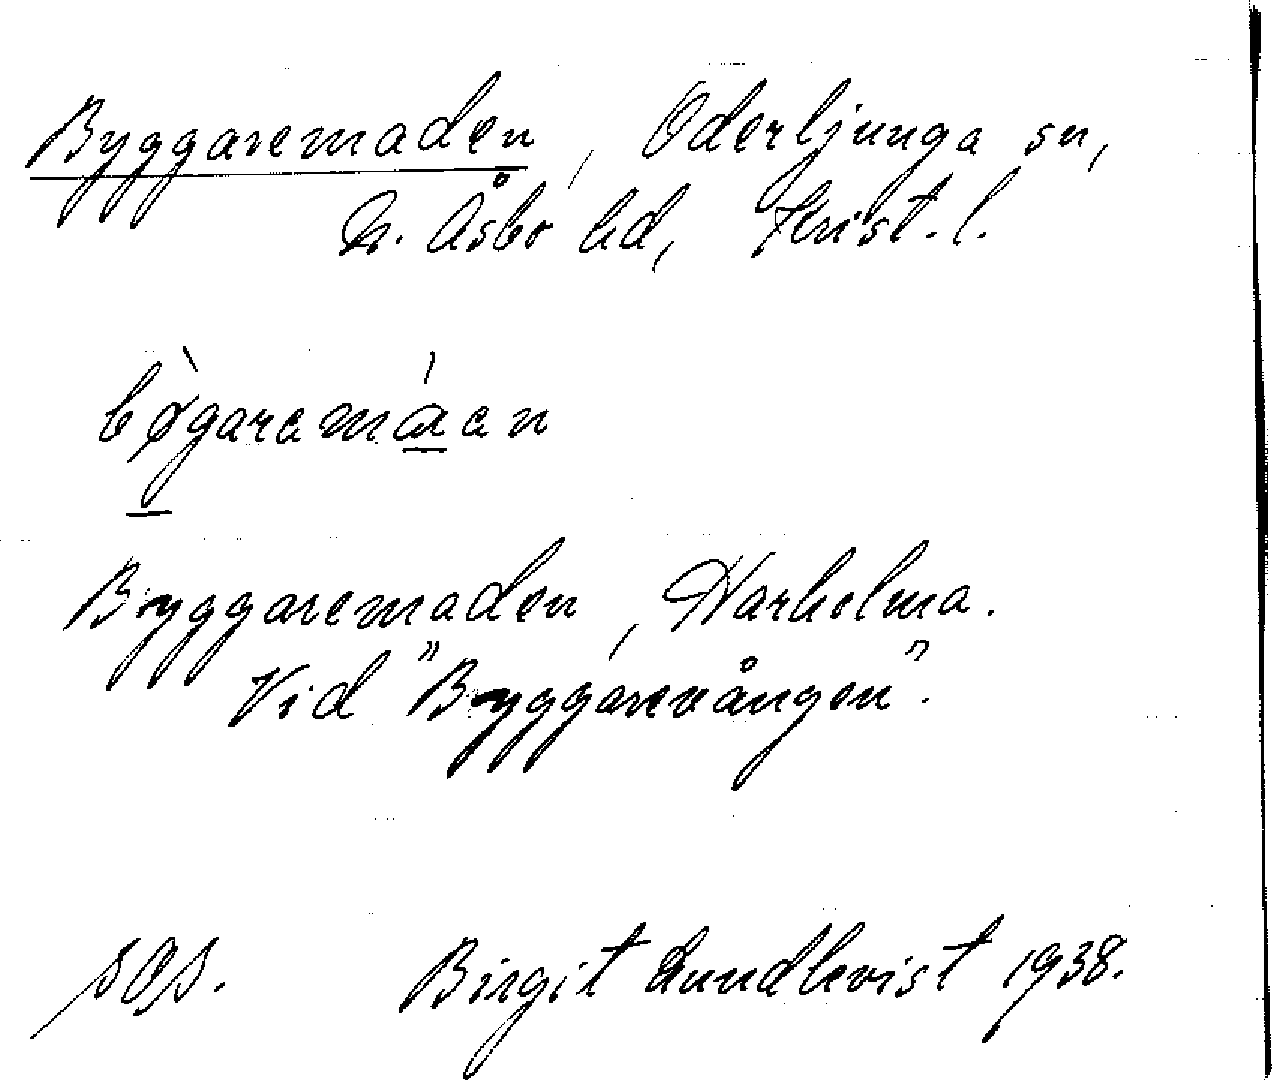 Byggaremaden, Oderljunga sn,
N. Åsbo hd, Krist. l.
bø̀garamáen
Byggaremaden, Harholma.
Vid "Byggarevången".
Birgit Lundkvist 1938.